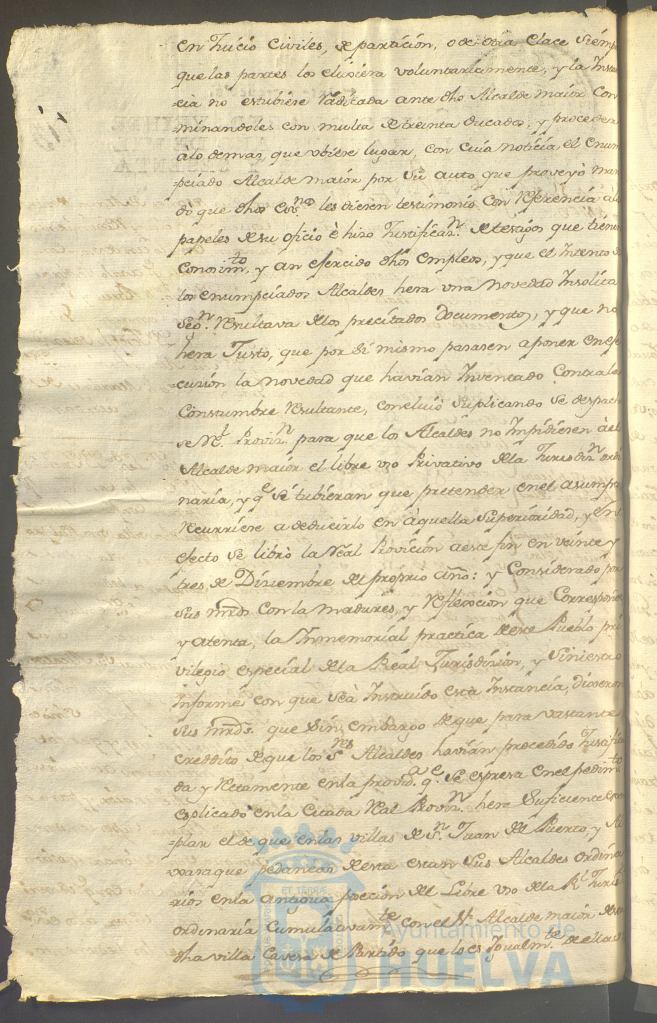 en Juicio Civiles, de particion, o de otra Clace siemp
que las partes los elijiera voluntariamente, y la Instan
cia no estubiere radicada ante dho Alcalde maior Con
minandoles con multa de treinta ducados, y proceder
à lo demas que ubiere lugar, con cuia noticia el enun
ciado Alcalde maior por su auto que proveyò man
dò que dhos les diesen testimonio con referencia à los
papeles de su oficio è hizo Justificaz.n de testigos que tienen
Conosim.to, y an ejercido dhos empleos, y que el Intento de
los enumpciados Alcaldes hera una novedad Insolita
Seg.n resultava de los precitados documentos, y que no
hera Justo, que por si mismo pasasen a poner en eje
cucion la novedad que havian Inventado Contra la
Constumbre resultante, concluiò suplicando se despach
se R.l Provi.n para que los Alcaldes no Impidiesen à el
Alcalde maior el libre uso Privativo de la Jurisdiz.n ordi
naria, y q.e si tubieran que pretender en el asumpto
recurriese a deducirlo en aquella Superioridad, y en
efecto se librò la real Provicion a este fin en veinte y
tres de Diciembre del proprio año: y Considerado por
sus mrds. con la madures, y reflecsion que Corresponde
y atenta, la Inmemorial practica de este Pueblo pri
vilegio especial de la Real Jurisdicion, y siniestro
Informe con que se à Instruido esta Instancia, dixeron
sus mrds. que sin embargo de que para vastante
creddito de que los S.res Alcaldes havian procedido Justifica
da y rectamente en la provid.a q.e se espresa en el pedim.to
esplicado en la Citada real Provi.n hera suficiente exem
plar el de que en las villas de S.n Juan del Puerto, y Al
xaraque pedaneas de esta estan sus Alcaldes ordina
rios en la antigua posecion del Libre uso de la R.l Jurisd.n
ordinaria Cumulativam.te con el S.r Alcalde maior de es
dha villa Caveza de Partido que lo es Igualm.te de ellas
ET TERRAE
Ayuntamiento de
HUELVA